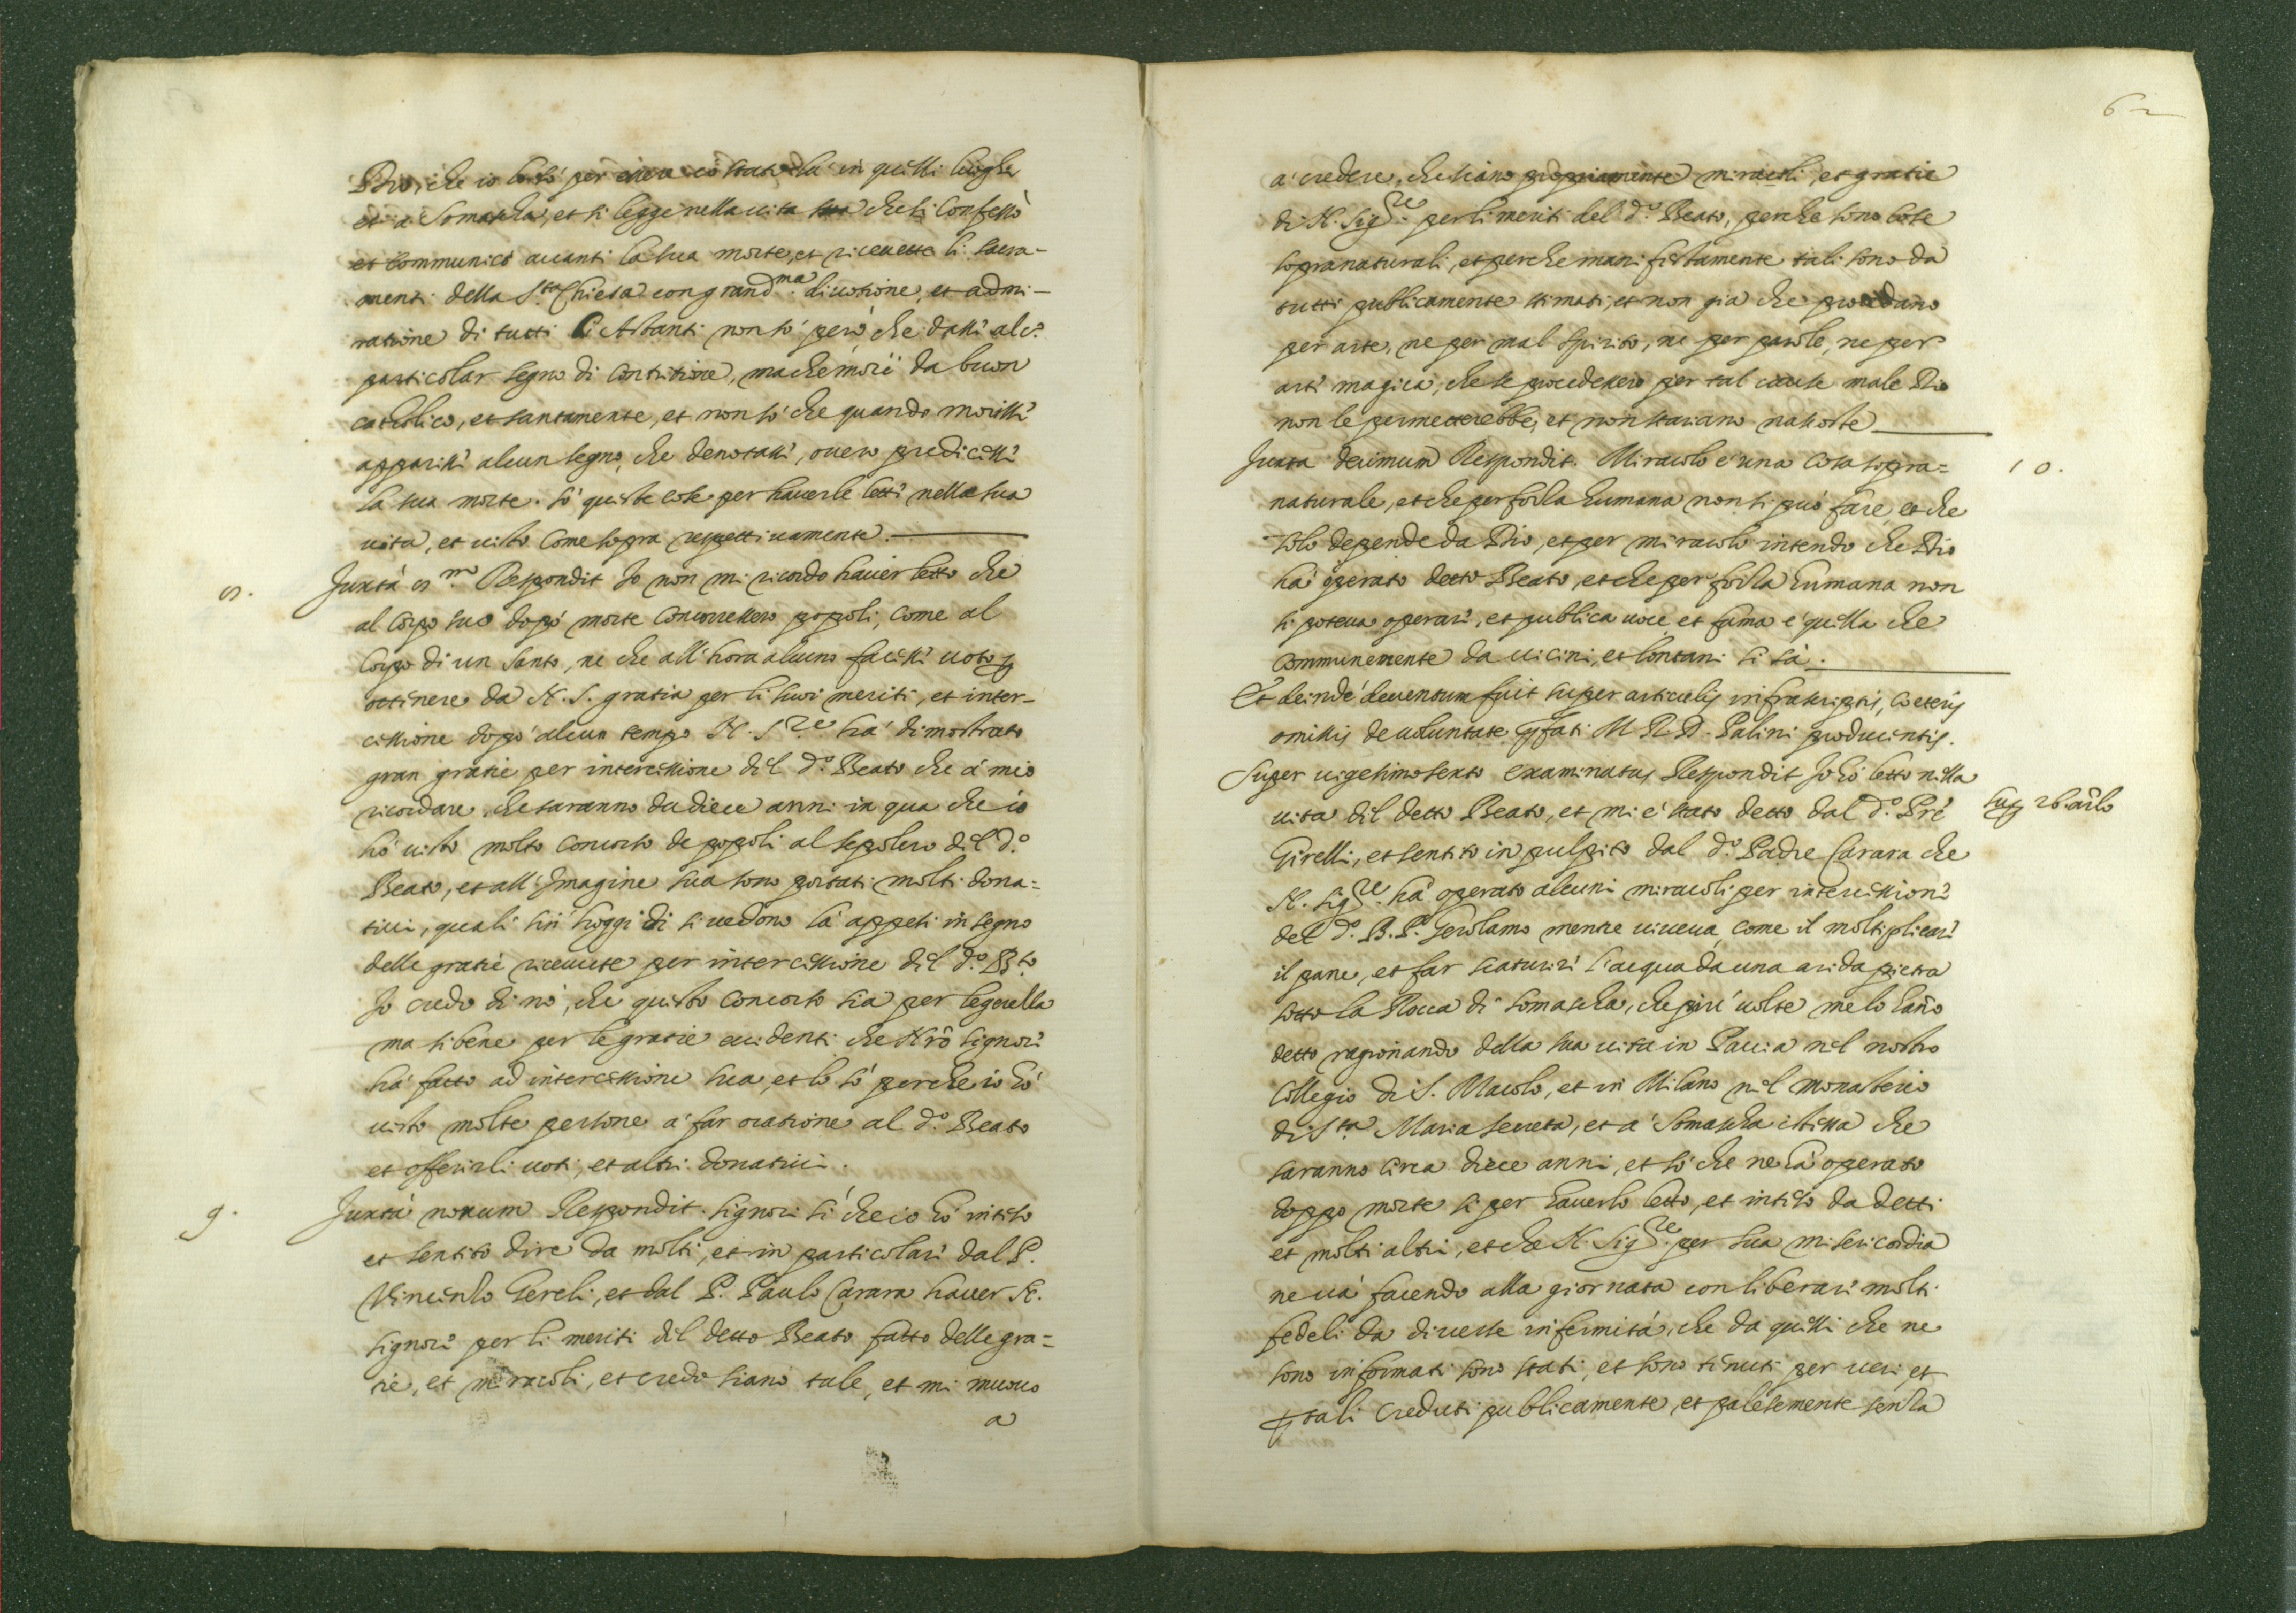 Dio, che io lo sò per essere io stato là in quelli luoghi
et à Somascha, et si legge nella vita sua che si confessò
et communicò avanti la sua morte, et ricevette li sacra-
menti della S.ta Chiesa con grand.ma divotione, et admi-
ratione di tutti li Astanti non sò però che dassi alc.o
particolar segno di contritione, ma che morì da buon
catholico, et santamente, et non sò che quando morissi
apparissi alcun segno, che denotassi, overo predicessi
la sua morte. sò queste cose per haverle letti nella sua
vita, et visto come sopra respettivamente.
8. Juxta 8.m Respondit Io non mi ricordo haver letto che
al corpo suo dopò morte concorressero popoli, come al
corpo di un santo, ne che all'hora alcuno facessi voto p
ottinere da N. S. gratia per li suoi meriti, et inter-
cessione dopò alcun tempo N. S.re hà dimostrato
gran gratie per intercessione dil d.o Beato che à mio
ricordare, che saranno da diece anni in qua che io
hò visto molto concorso de popoli al sepolcro dil d.o
Beato, et all'Imagine sua sono portati molti dona=
tivi, quali sin hoggi dì si vedono là appesi in segno
delle gratie ricevute per intercessione dil d.o B.to
Io credo di nò, che questo concorso sia per legerella
ma sibene per le gratie evidenti che Nro Signori
hà fatto ad intercessione sua, et lo sò perche io hò
visto molte persone à far oratione al d.o Beato
et offerirli voti, et altri donativi.
9. Juxta nonum Respondit. Signori sì che io hò inteso
et sentito dire da molti, et in particolari dal P.
Vincenzo Gereli, et dal P. Paulo Carara haver N.
Signori per li meriti dil detto Beato fatto delle gra=
tie, et miracoli, et credo siano tale, et mi muovo
a
62
à credere, che siano propriamente miracoli, et gratie
di N. Sig.re per li meriti del d.o Beato, perche sono cose
sopranaturali, et perche manifestamente tali sono da
tutti publicamente stimati, et non gia che procedano
per arte, ne per mal spirito, ne per parole, ne per
arti magica, che se procedessero per tal male Dio
non le permetterebbe, et non stariano nascoste
Juxta decimum Respondit. Miracolo è una cosa sopra=
10.
naturale, et che per forza humana non si può fare, et che
solo depende da Dio, et per miracolo intendo che Dio
hà operato detto Beato, et che per forza humana non
si poteva operari, et publica voce et fama è quella che
communemente da vicini, et lontani si sà.
Et deinde deventum fuit super articulis infrascriptis, coeteris
omissis de voluntate pfati M R D. Palini producentis.
Super vigesimosexto examinatus Respondit Io hò letto nella
vita dil detto Beato, et mi è stato detto dal d.o Pre
sup 26. arlo
Girelli, et sentito in pulpito dal d.o Padre Carara che
N. Sig.re hà operato alcuni miracoli per intercessioni
del d.o B. P. Gerolamo mentre viveva, come il moltiplicari
il pane, et far scaturiri l'acqua da una arida pietra
sotto la Rocca di Somascha, che più volte me lo hano
detto ragionando della sua vita in Pavia nel nostro
Collegio di S. Maiolo, et in Milano nel monasterio
di S.ta Maria secreta, et à Somascha istessa che
saranno circa diece anni, et sò che ne hà operato
doppo morte si per haverlo letto, et inteso da detti
et molti altri, et che N. Sig.re per sua misericordia
ne và facendo alla giornata con liberari molti
fedeli da diverse infermità, che da quelli che ne
sono informati sono stati, et sono tenuti per veri et
p tali creduti publicamente, et palesemente senza